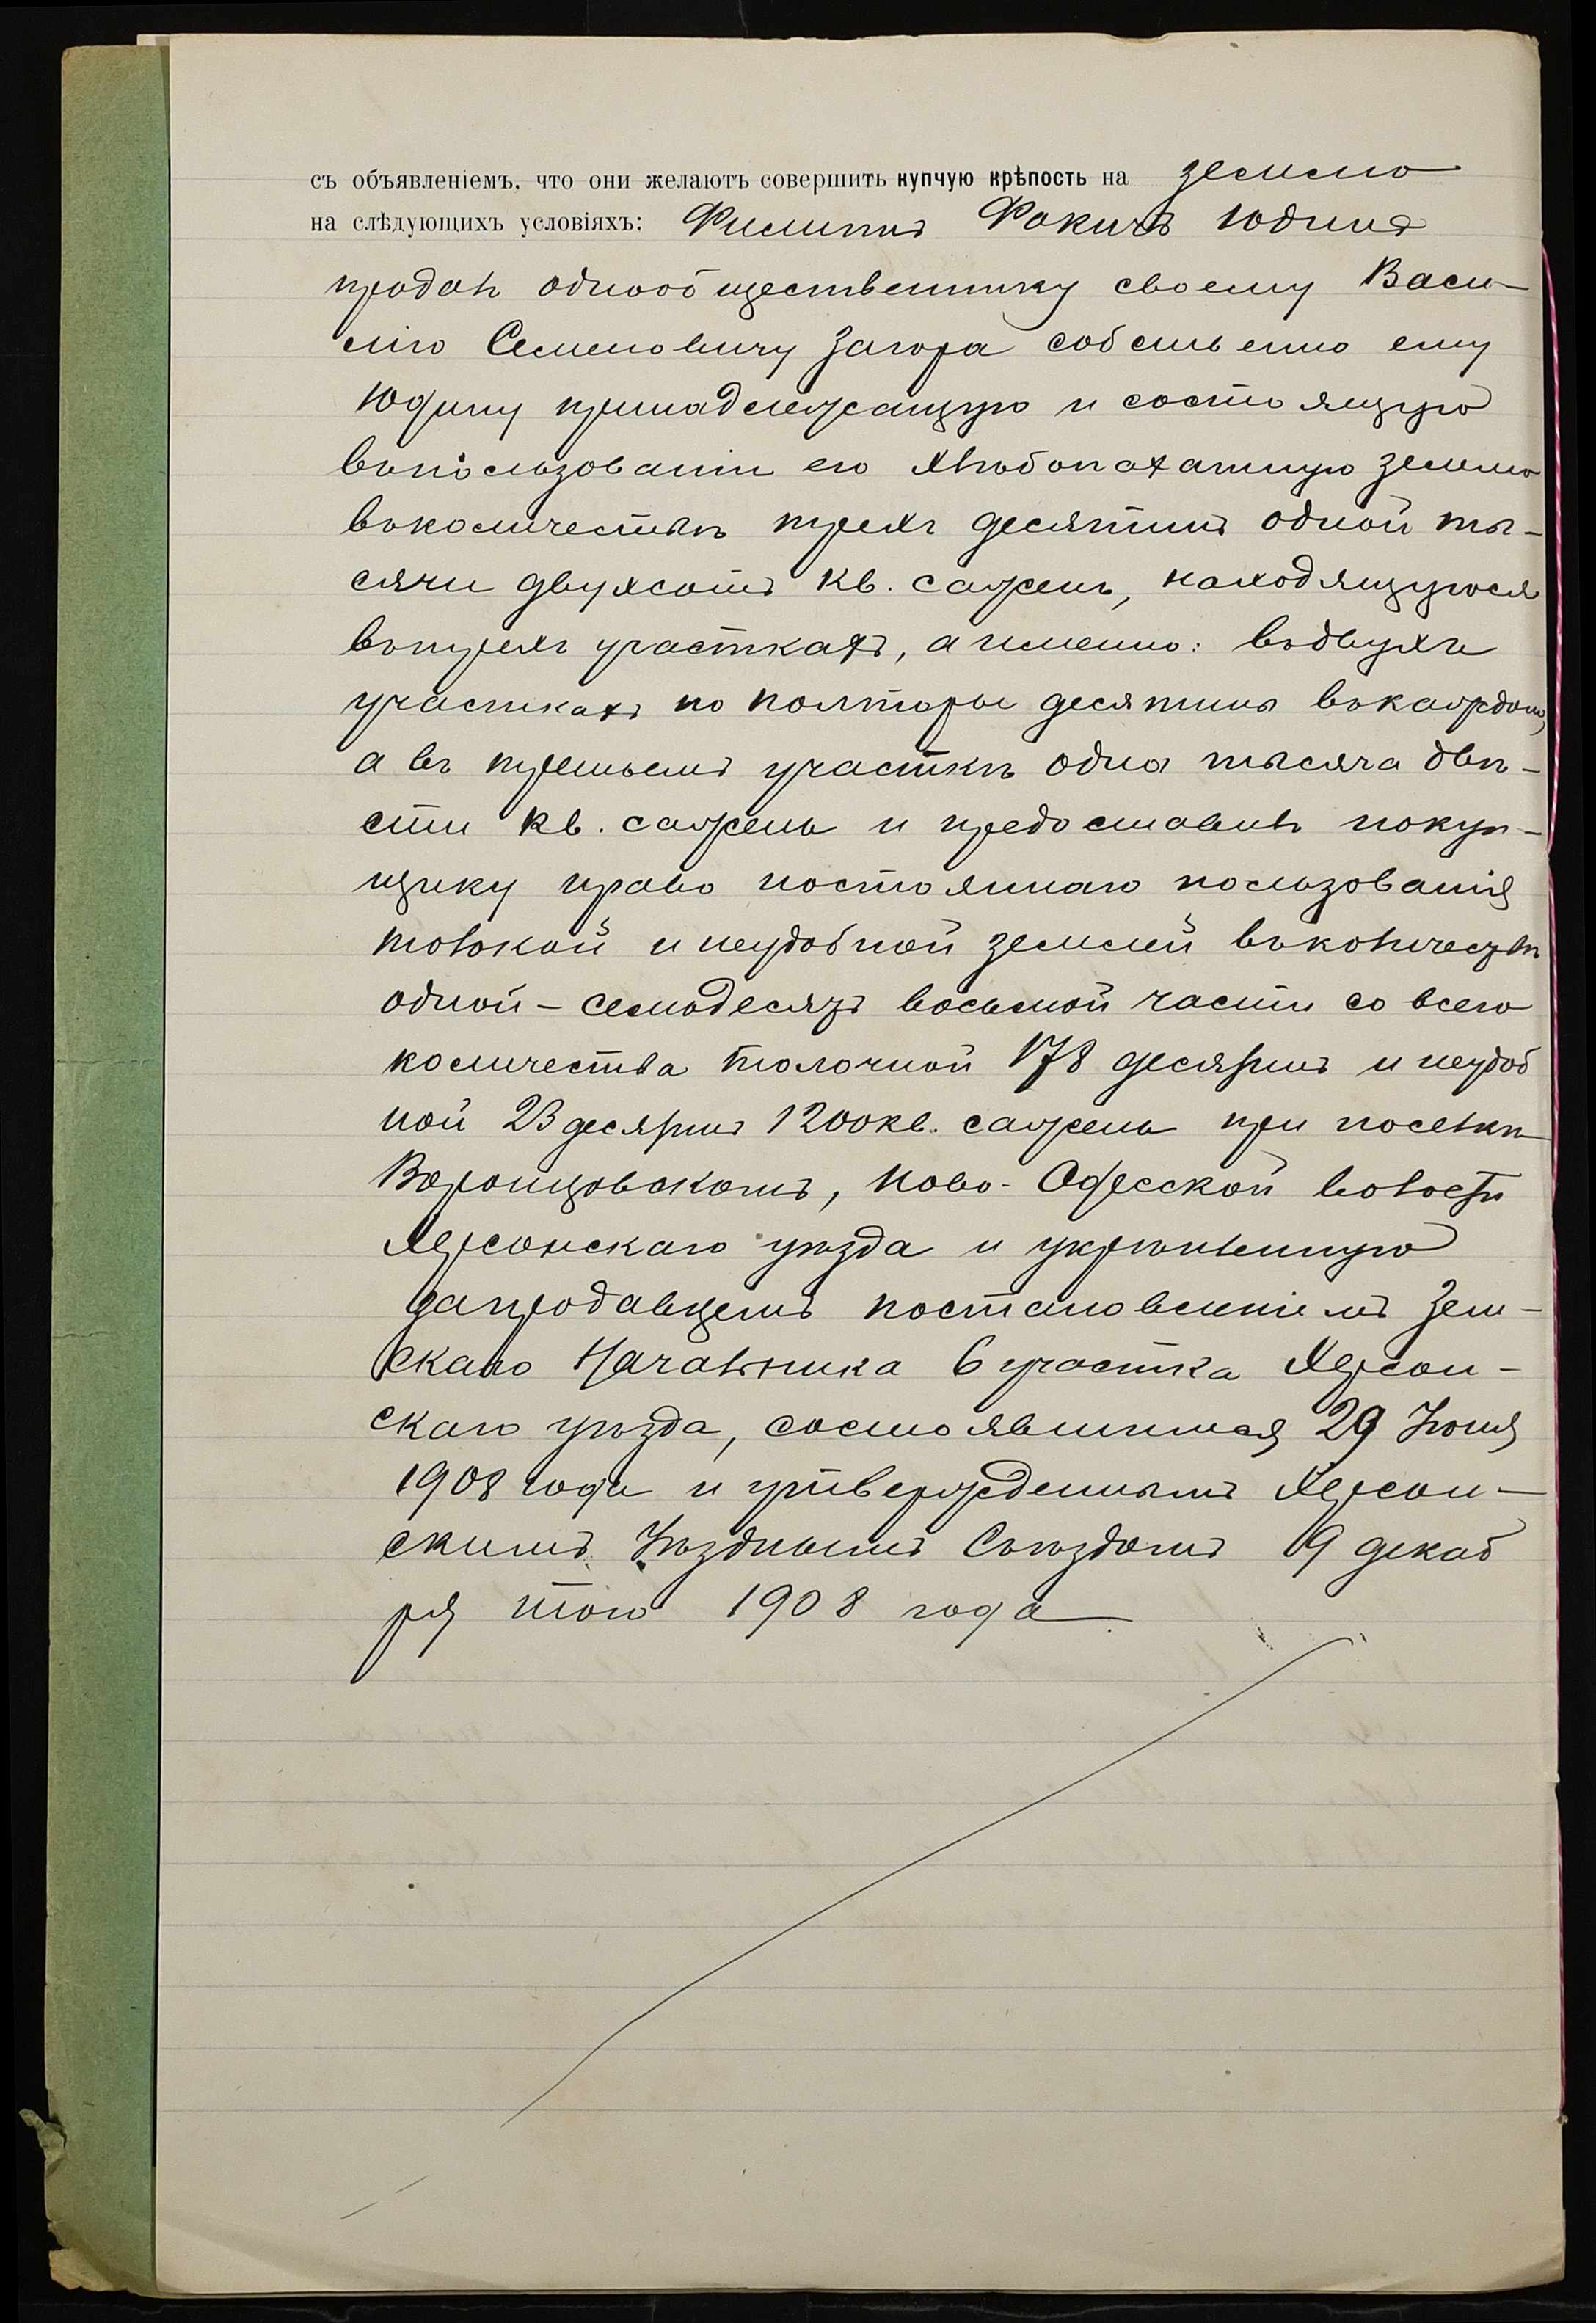 съ объявленіемъ, что они желаютъ совершить купчую крѣпость на землю
на слѣдующихъ условіяхъ: Филиппъ Фокичъ Юдинъ
продалъ однообщественнику своему Васи-
лію Семеновичу Загора собственно ему
Юдину принадлежащую и состоящую
въ пользованіи его хлѣбопахатную землю
въ количествѣ трехъ десятинъ одной ты-
сячи двухсотъ кв. сажень, находящуюся
въ трехъ участкахъ, а именно: въ двухъ
участкахъ по полторы десятины въ каждомъ,
а въ третьемъ участкѣ одна тысяча двѣ-
сти кв. сажень и предоставилъ покуп-
щику право постояннаго пользованія
толокой и неудобной землей въ количествѣ
одной - семьдесятъ восьмой части со всего
количества толочной 178 десятинъ и неудоб
ной 23 десятинъ 1200 кв. сажень при поселкѣ
Воронцовскомъ, Ново-Одесской волости
Херсонскаго уѣзда и укрѣпленную
за продавцемъ постановленіемъ Зем-
скаго Начальника 6 участка Херсон-
скаго уѣзда, состоявшимся 29 Іюня
1908 года и утвержденнымъ Херсон-
скимъ Уѣзднымъ Съѣздомъ 19 декаб
ря того 1908 года